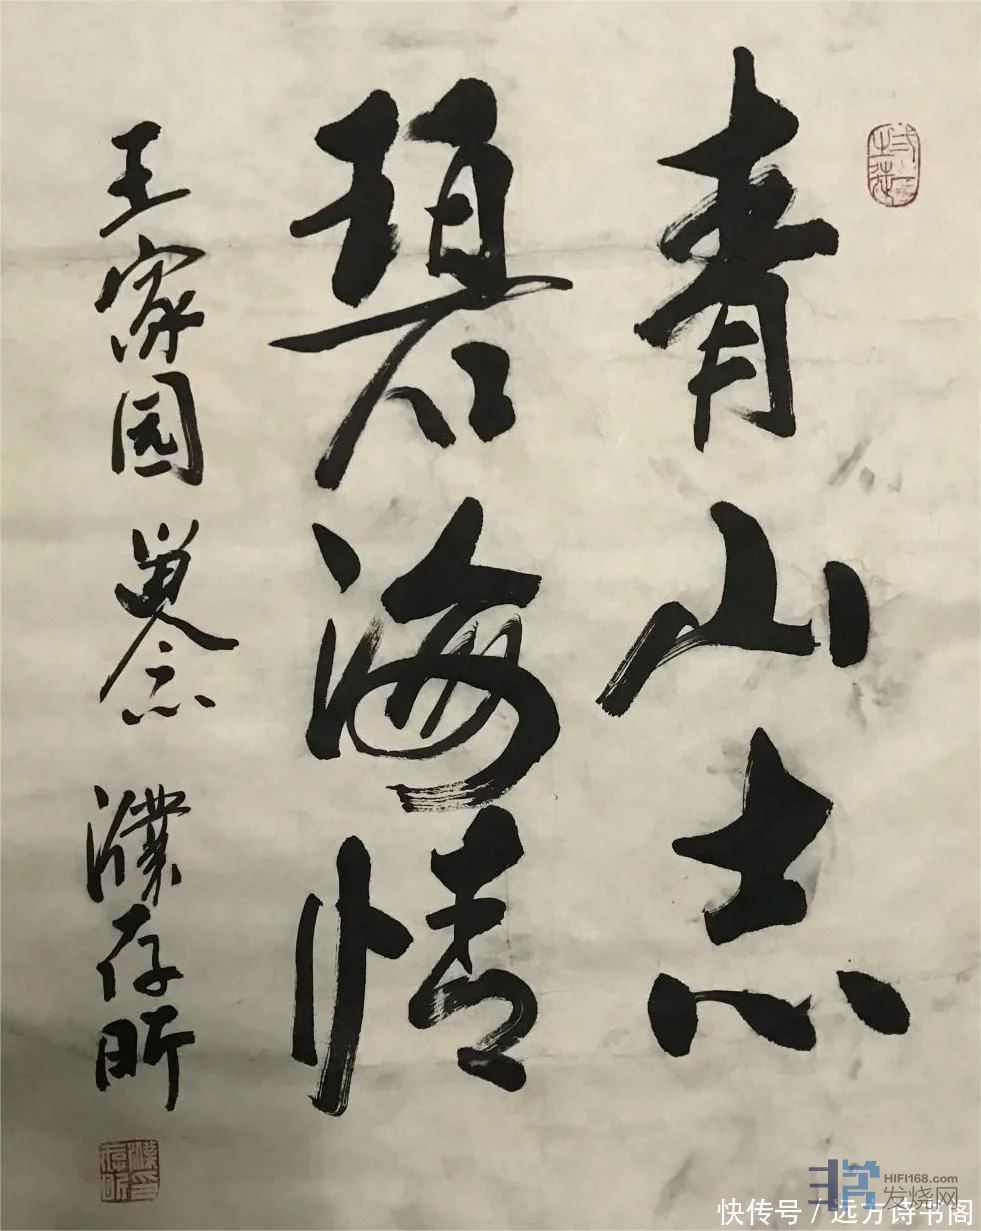 青山志
碧海情
王家园 濮存昕
HIFI168.com
发烧网
快传号 / 远方诗书阁